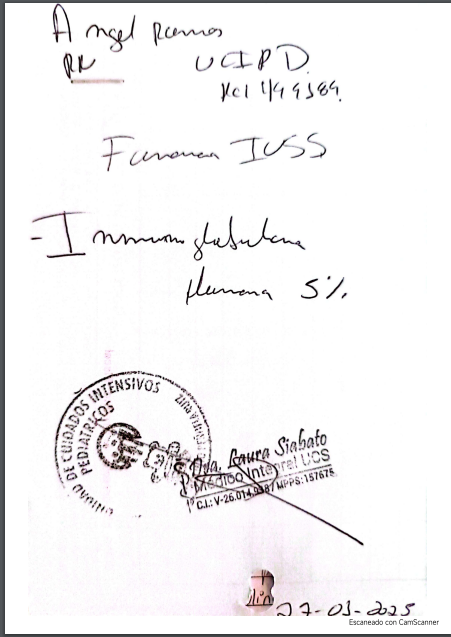 Angel Ramos
RN UCIPD.
Farmacia IVSS
- Inmunoglobulina
Humana 5%
UNIDAD DE CUIDADOS INTENSIVOS
PEDIATRICOS
Dra. Laura Siabato
Médico Integral UCS
C.I.: V-26.014. MPPS:157675
27-03-2025
Escaneado con CamScanner